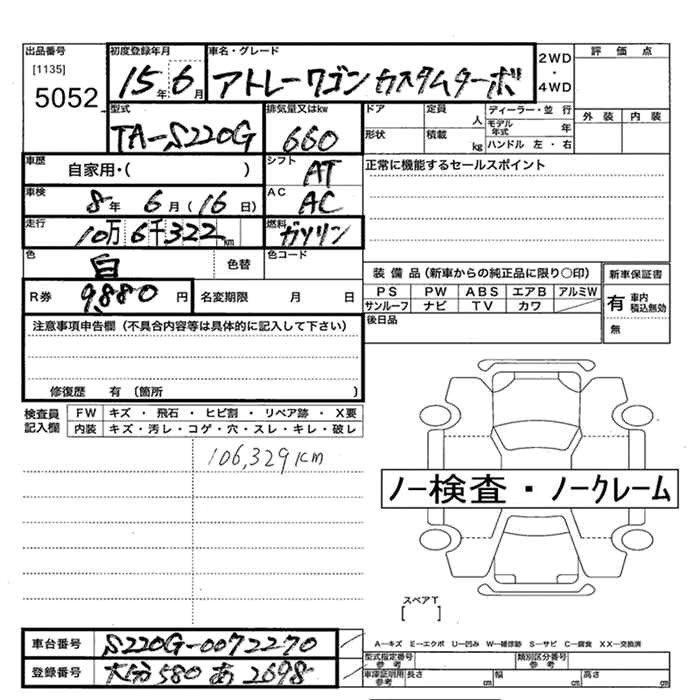 出品番号
[1135]
5052
初度登録年月
15年 6月
車名・グレード
アトレーワゴン カスタムターボ
2WD
・
4WD
評価点
外装 内装
型式
TA-S220G
排気量又はkw
660
ドア
定員
人
形状
積載
kg
ディーラー・並行
モデル年式
年
ハンドル 左・右
車歴
自家用・( )
シフト
AT
正常に機能するセールスポイント
車検
8年 6月(16日)
AC
AC
走行
10万6千322km
燃料
ガソリン
色
白
色替
色コード
R券
9,880円
名変期限 月 日
装備品(新車からの純正品に限り○印)
PS PW ABS エアB アルミW
サンルーフ ナビ TV カワ
後日品
新車保証書
有
車内
積込無効
無
注意事項申告欄(不具合内容等は具体的に記入して下さい)
修復歴 有 (箇所 )
検査員
記入欄
FW キズ・飛石・ヒビ割・リペア跡・X要
内装 キズ・汚レ・コゲ・穴・スレ・キレ・破レ
106,329km
ノー検査・ノークレーム
スペアT
[ ]
車台番号
S220G-0072270
登録番号
大分580あ2698
A―キズ E―エクボ U―凹み W―補修跡 S―サビ C―腐食 XX―交換済
型式指定番号
参考
類別区分番号
参考
車庫証明用
参考
長さ cm
幅 cm
高さ cm